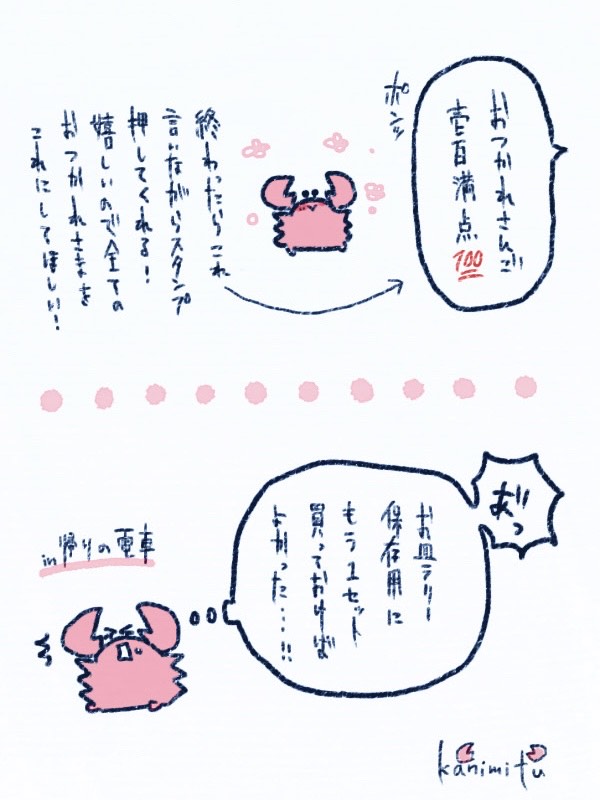 おつかれさんご
壱百満点💯
ポンッ
終わったらこれ
言いながらスタンプ
押してくれる!
嬉しいので全ての
おつかれさまを
これにしてほしい!
あ゛っ
お皿ラリー
保存用に
もう1セット
買っておけば
よかった…!!
in帰りの電車
kanimitu